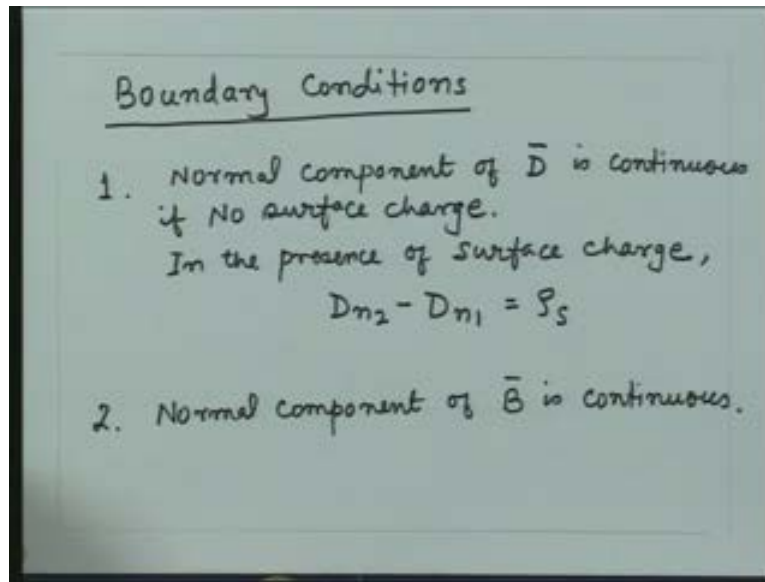 Boundary Conditions
1. Normal component of D̄ is continuous
if No surface charge.
In the presence of surface charge,
Dn₂ - Dn₁ = ρs
2. Normal component of B̄ is continuous.